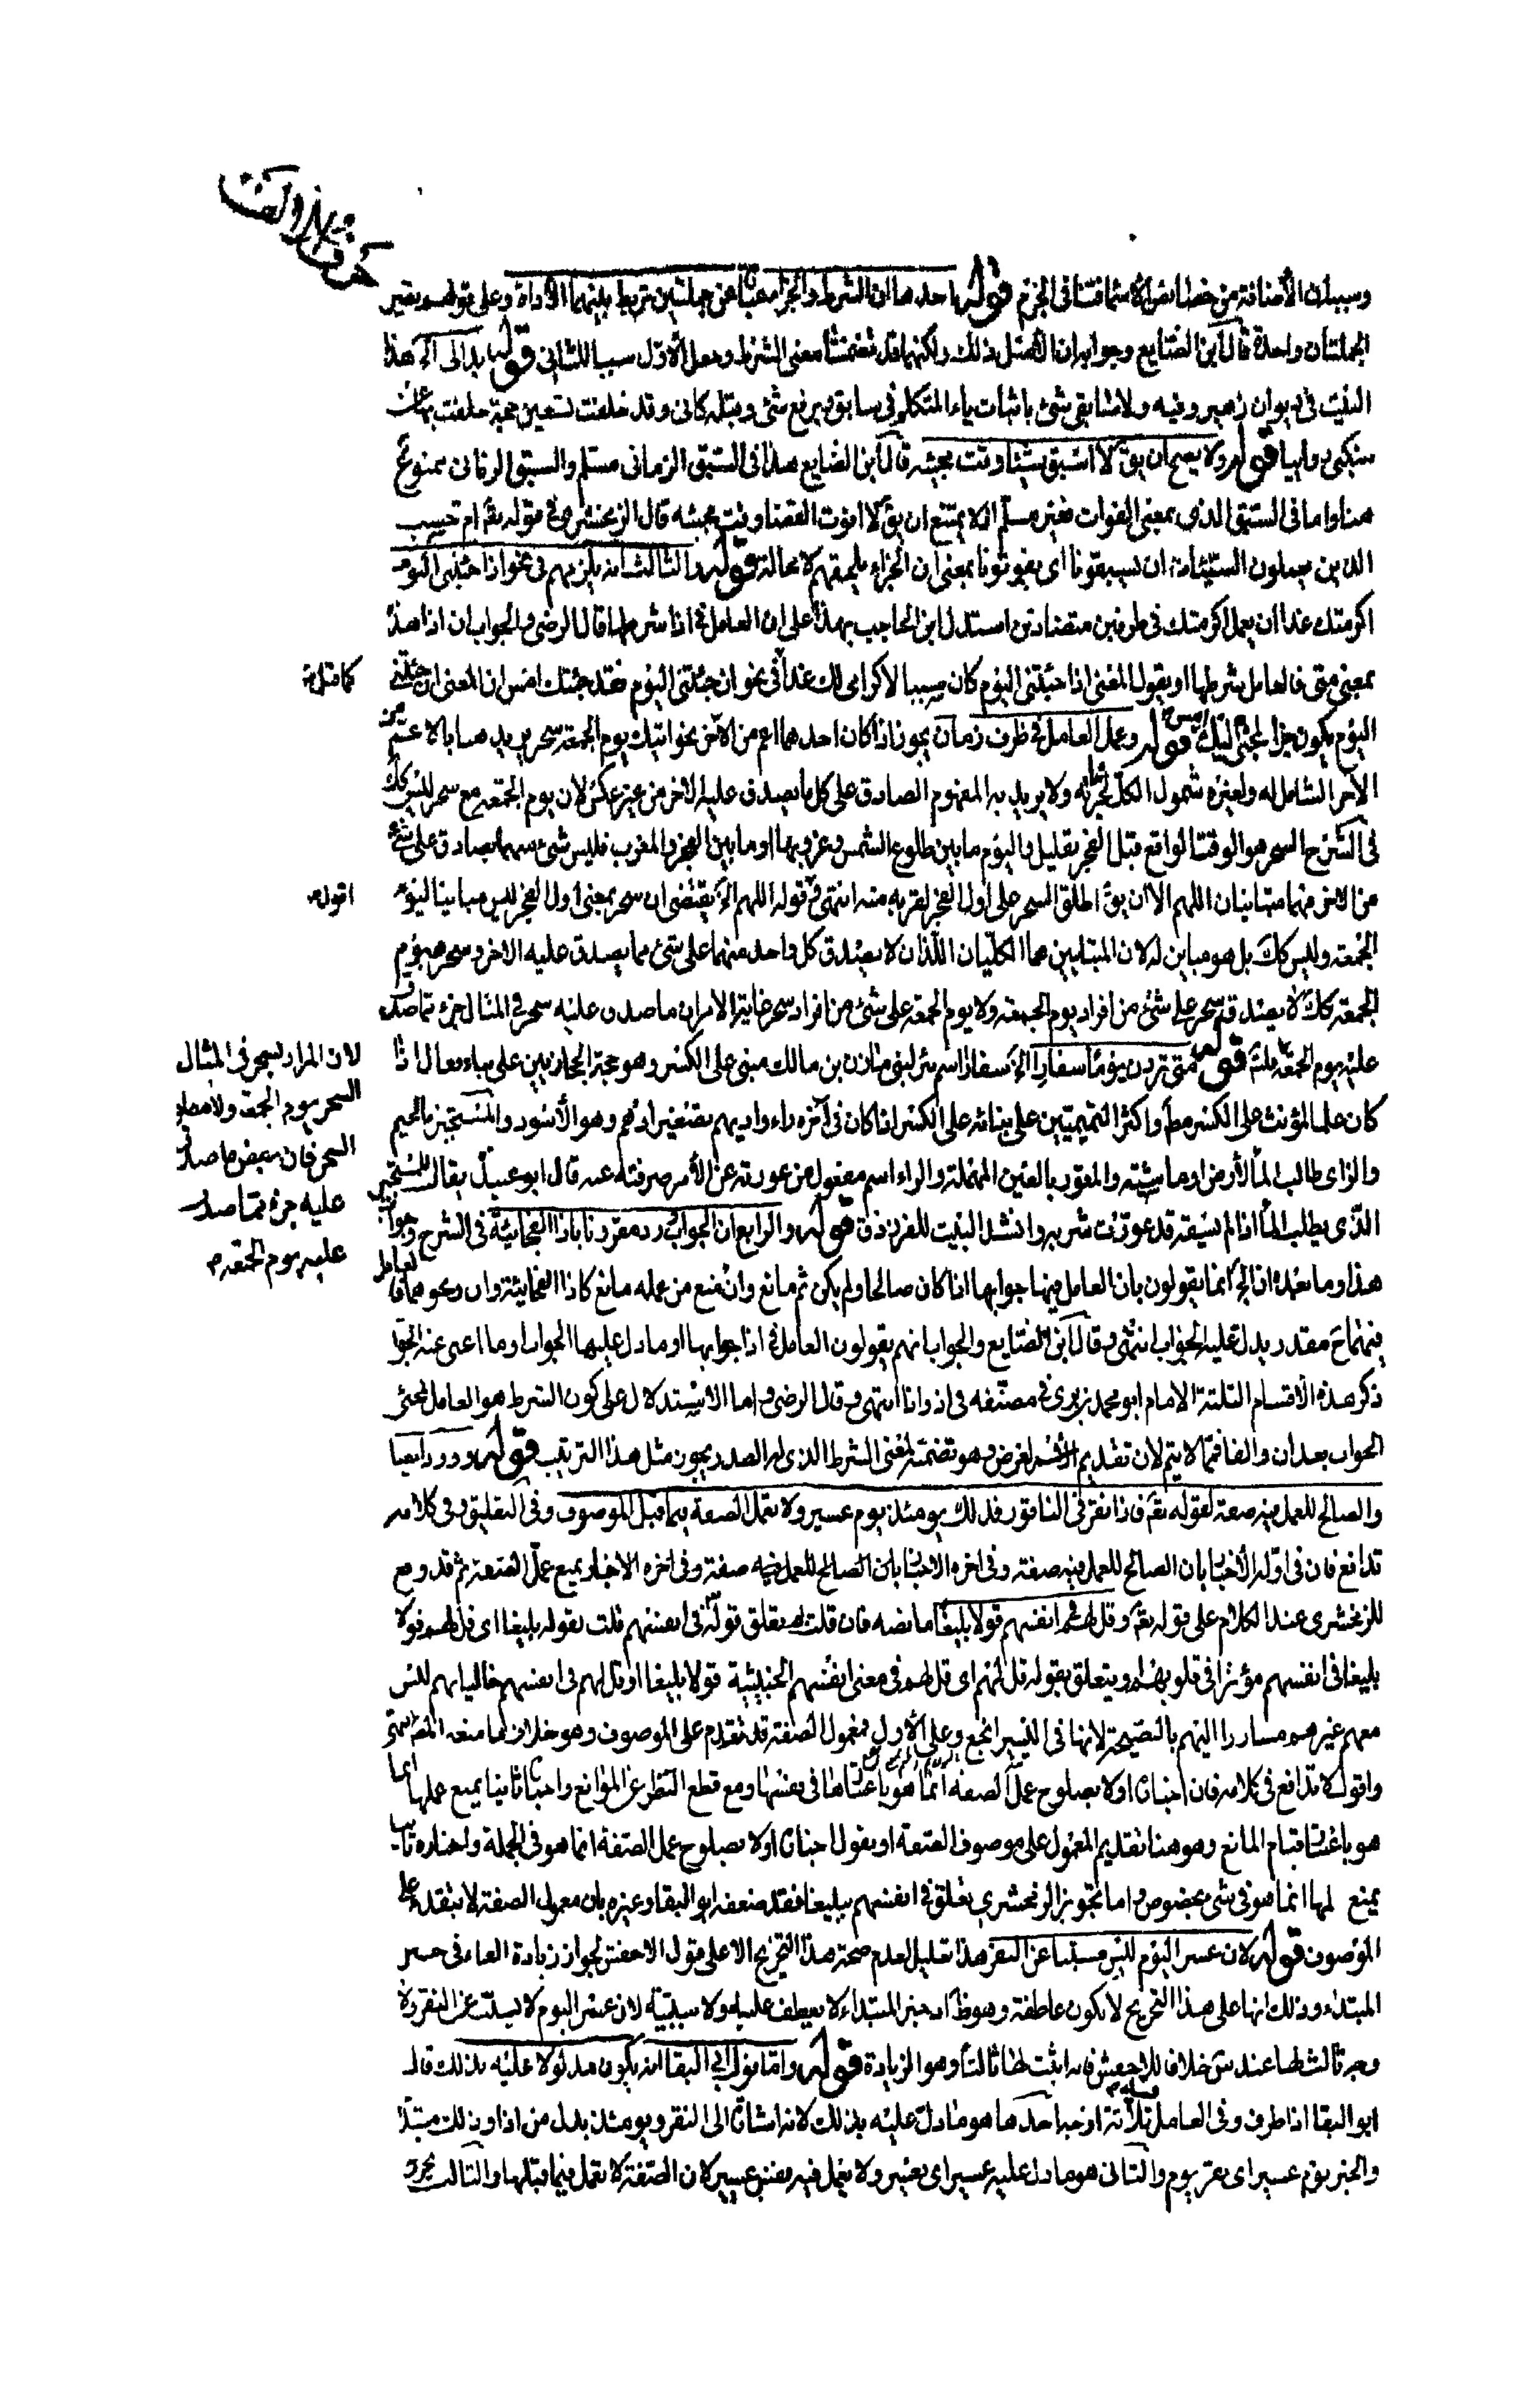 حرف الهمزة والف
وسببك الاضافة من خصائص الاسما فتنافى الجزم قوله احدها ان الشرط والجزا عبارة عن جملتين تربط بينهما الاداة وعلى قولهم يصير
الجملتان واحدة قال ابن الصايغ وجوابه ان الاصل ذلك ولكنهما قد تضمنتا معنى الشرط وجعل الاول سببا للثانى قوله بدا لى الخ هذا
البيت فى ديوان زهير وفيه ولا سابقى شئ باثبات ياء المتكلم فى سابق ورفع شئ وقبله كانى وقد خلفت تسعين حجة خلعت بها عن
منكبى ردائيا قوله ولا يصح ان يق لا اسبق شيئا وقت مجيئه قال ابن الضايع هذا فى السبق الزمانى مسلم والسبق الزمانى ممنوع
هنا واما فى السبق الذى بمعنى الفوات فغير مسلم اذ لا يمتنع ان يق لا افوت القضا وقت مجيئه قال الزمخشرى فى قوله تع ام حسب
الذين يعملون السيئات ان يسبقونا اى يفوتونا بمعنى ان الجزاء يلحقهم لا محالة قوله والثالث انه يلزمهم فى نحو اذا جئتنى اليوم
اكرمتك غدا ان يعمل اكرمتك فى ظرفين متضادين استدل ابن الحاجب بهذا على ان العامل فى اذا شرطها قال الرضى والجواب ان اذا هذه
بمعنى متى فالعامل شرطها او يقول المعنى اذا جئتنى اليوم كان سببا لاكرامى لك غدا فى نحو ان جئتنى اليوم فقد جئتك امس ان المعنى ان جئتنى
كما قيل
اليوم يكون جزا لمجئى اليك امس قوله وعمل العامل فى ظرف زمان يجوز اذا كان احدهما اعم من الاخر نحو اتيتك يوم الجمعة سحر يريد هنا بالاعم من
الاخر الشامل له ولغيره شمول الكل لجزئه ولا يريد به المفهوم الصادق على كل ما يصدق عليه الاخر من غير عكس لان يوم الجمعة مع سحر ليس كك
فى الشرح السحر هو الوقت الواقع قبل الفجر بقليل واليوم ما بين طلوع الشمس وغروبها او ما بين الفجر والمغرب فليس شئ منهما بصادق على شئ
من الاخر فهما متباينان اللهم الا ان يق اطلق السحر على اول الفجر لقربه منه انتهى قوله اللهم الخ يقتضى ان سحر بمعنى اول الفجر ليس مباينا ليوم
اقول
الجمعة وليس كك بل هو مباين له لان المتباينين هما الكليان اللذان لا يصدق كل واحد منهما على شئ مما يصدق عليه الاخر وسحر ويوم
الجمعة كك لا يصدق سحر على شئ من افراد يوم الجمعة ولا يوم الجمعة على شئ من افراد سحر غاية الامر ان ما صدق عليه سحر فى المثال جزء مما صدق
عليه يوم الجمعة قوله متى تردن يوما سفار الخ سفار اسم بئر لبنى مازن بن مالك مبنى على الكسر وهو حجة الحجازيين على بناء فعال اذا
كان علما لمؤنث على الكسر مط واكثر التميميين على بنائه على الكسر اذا كان فى آخره راء واديهم تصغير ادهم وهو الاسود والمستجيز بالجيم
والزاى طالب الما لارض او ماشية والمعور بالعين المهملة والراء اسم مفعول من عورته عن الامر صرفته عنه قال ابو عبيد يقال للمستجيز
الذى يطلب الما اذا لم يسقه قد عورت شربه وانشد البيت للفرزدق قوله والرابع ان الجواب ورد مقرونا باذا الفجائية فى الشرح وجواب
هذا وما بعده ان الخ انما يقولون بان العامل فيها جوابها اذا كان صالحا ولم يكن ثم مانع وان منع من عمله مانع كاذا الفجائية وان ونحوهما فالعامل
فيها ح مقدر يدل عليه الجواب انتهى وقال ابن الصايغ والجواب انهم يقولون العامل فى اذا جوابها او ما دل عليها الجواب او ما اغنى عنه الجواب
ذكر هذه الاقسام الثلثة الامام ابو محمد بن برى فى مصنفه فى اذ واذا انتهى وقال الرضى واما الاستدلال على كون الشرط هو العامل لمجئ
الجواب بعد ان والفا فمما لا يتم لان تقديم الاسم لغرض وهو تضمنه لمعنى الشرط الذى له الصدر يجوز مثل هذا الترتيب قوله وورد ايضا
والصالح للعمل فيه صفة لقوله تع فاذا نقر فى الناقور فذلك يومئذ يوم عسير ولا تعمل الصفة فيما قبل الموصوف وفى التعليق وفى كلامه
تدافع فان فى اوله الاخبار بان الصالح للعمل فيه صفة وفى اخره الاخبار بمنع عمل الصفة ثم قد وقع
للزمخشرى عند الكلام على قوله تع وقل لهم فى انفسهم قولا بليغا ما نصه فان قلت بم تعلق قوله فى انفسهم قلت بقوله بليغا اى قل لهم قولا
بليغا فى انفسهم مؤثرا فى قلوبهم او يتعلق بقوله قل لهم اى قل لهم فى معنى انفسهم الخبيثة قولا بليغا او قل لهم فى انفسهم خاليا بهم ليس
معهم غيرهم مسارا اليهم بالنصيحة لانها فى السر انجع وعلى الاول فمعمول الصفة قد تقدم على الموصوف وهو خلاف ما منعه المص انتهى
واقول لا تدافع فى كلامه فان اخباره اولا بصلوح عمل الصفة انما هو باعتبارها فى نفسها ومع قطع النظر عن الموانع واخباره ثانيا بمنع عملها انما
هو باعتبار قيام المانع وهو هنا تقديم المعمول على موصوف الصفة او يقول اخباره اولا بصلوح عمل الصفة انما هو فى الجملة واخباره ثانيا
بمنع لها انما هو فى شئ مخصوص واما تجويز الزمخشرى تعلق فى انفسهم ببليغا فقد ضعفه ابو البقا وغيره بان معمول الصفة لا يتقدم على
الموصوف قوله لان عسر اليوم ليس مسببا عن النقر هذا تعليل لعدم صحة هذا التخريج الا على قول الاخفش لجواز زيادة الفاء فى خبر
المبتداء وذلك انها على هذا التخريج لا تكون عاطفة وهو ظ اذ خبر المبتداء لا يعطف عليه ولا سببية لان عسر اليوم لا يسبب عن النقر ولا
وجه ثالث لها عند س خلافا للاخفش فانه اثبت لها ثالثا وهو الزيادة قوله واما قول ابى البقا انه يكون مدلولا عليه بذلك قال
ابو البقا اذا ظرف وفى العامل فيه ثلاثة اوجه احدها هو ما دل عليه بذلك لانه اشارة الى النقر ويومئذ بدل من اذا وذلك مبتدا
والخبر يوم عسير اى نقر يوم والثانى هو ما دل عليه عسير اى تعسر ولا يعمل فيه نفس عسير لان الصفة لا تعمل فيما قبلها والثالث يخرج
لان المراد بسحر فى المثال
السحر يوم الجمعة ولا مطلق
السحر فان بعض ما صدق
عليه جزء مما صدق
عليه يوم الجمعة